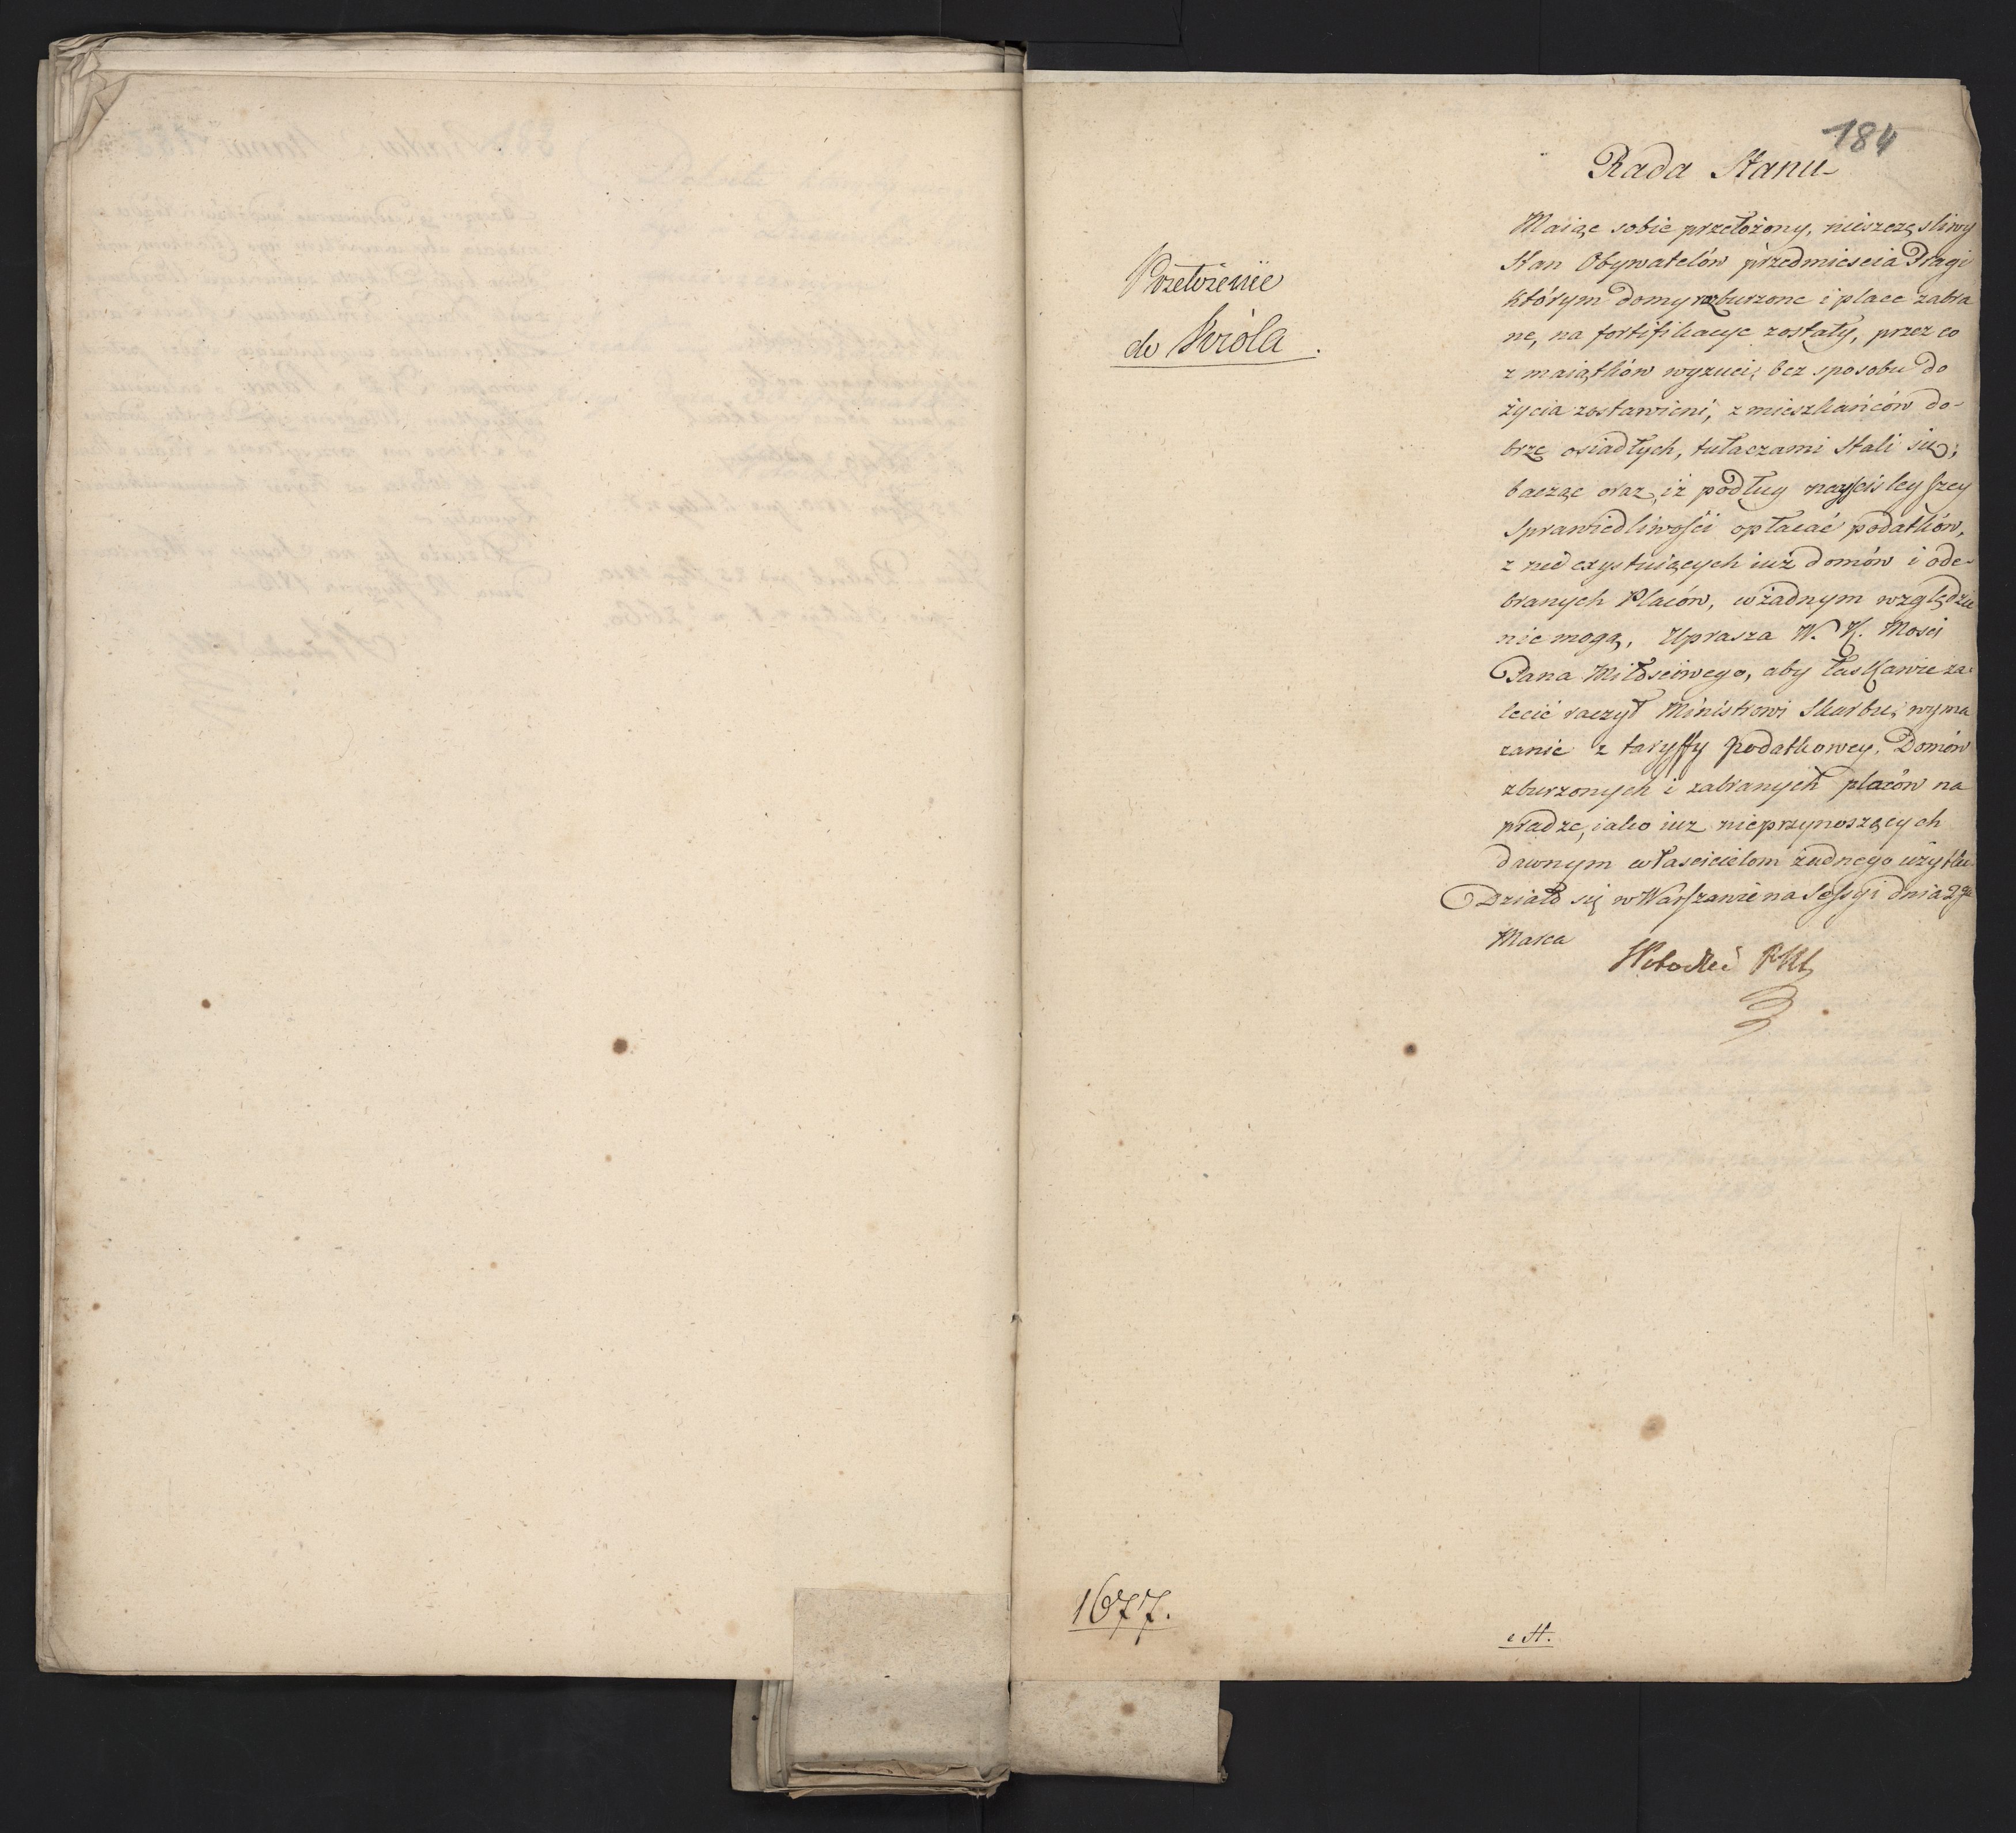 184
Rada Stanu
Przełożenie
do Króla.
Maiąc sobie przełożony, nieszczęsliwy
stan Obywatelów przedmieścia Pragi
którym domy rozburzone i place zabra
ne, na fortifikacye zostały, przez co
z maiątków wyzuci, bez sposobu do
życia zostawieni, z mieszkańców do-
brze osiadłych, tułaczami stali się;
bacząc oraz, iż podług nayścisleyszey
sprawiedliwości opłacać podatków,
z nieexystuiących iuż domów i ode-
branych Placów, w żadnym względzie
nie mogą, Uprasza W. K. Mości
Pana Miłościwego, aby łaskawie za-
lecić raczył Ministrowi Skarbu, wyma
zanie z taryffy podatkowey, Domów
zburzonych i zabranych placów na
pradze, iako iuz nieprzynoszących
dawnym właścicielom żadnego użytku.
Działo się w Warszawie na Sessyi dnia 2go
Marca
1677.